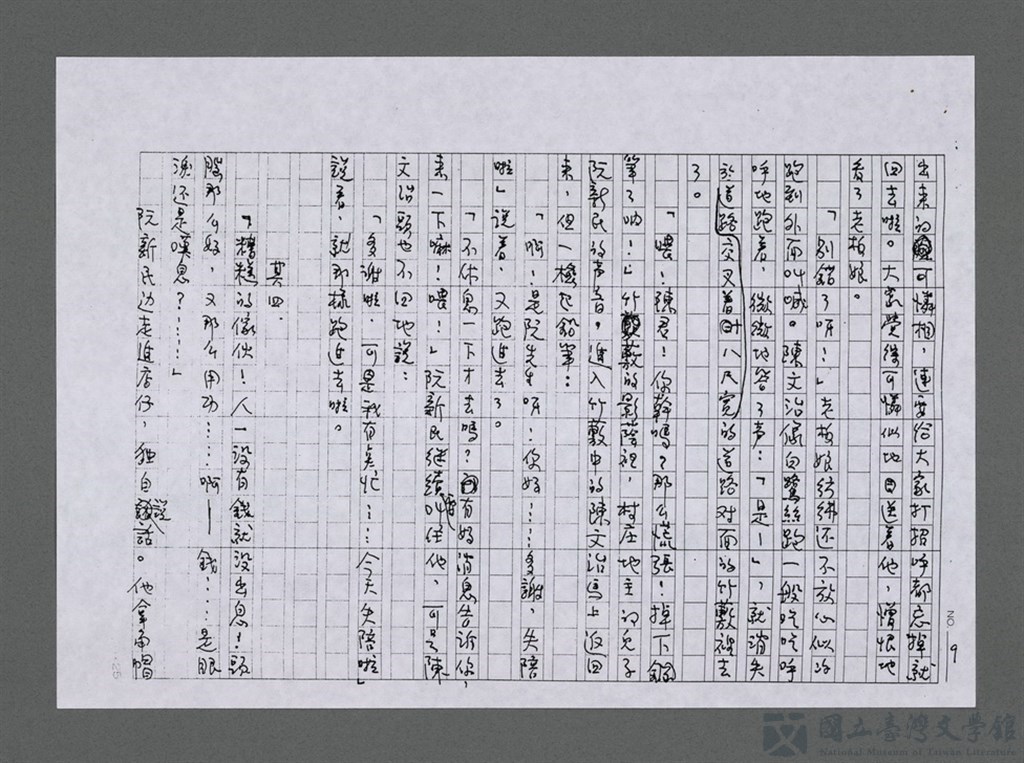 出来的可憐相，連要給大家打招呼都忘掉就
回去啦。大家覺得可憐似地目送着他，憎恨地
看了老板娘。
「別錯了呀！」老板娘彷彿还不放心似的
跑到外面叫喊。陳文治像白鷺絲跑一般吃吃呼
呼地跑着，微微地答了声：「是—」，就消失
於道路交叉着八尺寬的道路对面的竹藪裡去
了。
「喂！陳君！你幹嗎？那么慌張！掉下鋼
筆了呐！」竹藪的影蔭裡，村庄地主的兒子
阮新民的声音。進入竹藪中的陳文治馬上返回
来，但一樓起鉛筆：
「啊！是阮先生呀！你好……多謝，失陪
啦」說着，又跑進去了。
「不休息一下才去嗎？有好消息告訴你，
来一下嘛！喂！」阮新民継續叫住他，可是陳
文治頭也不回地說：
「多謝啦，可是我有矣忙……今天失陪啦」
說着，就那樣跑進去啦。
其四
「糟糕的傢伙！人一没有錢就没出息！頭
腦那么好，又那么用功……啊——錢……是眼
淚还是嘆息？……」
阮新民边走進店仔，独自說話。他拿甬帽
NO 9
國立臺灣文學館
National Museum of Taiwan Literature